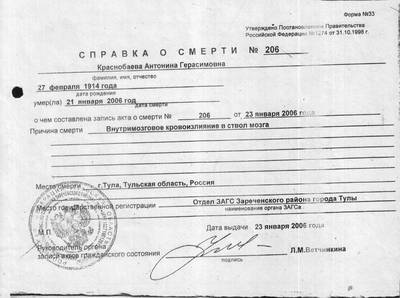 Форма №33
Утверждено Постановлением Правительства
Российской Федерации №1274 от 31.10.1998 г.
СПРАВКА О СМЕРТИ № 206
Краснобаева Антонина Герасимовна
фамилия, имя, отчество
27 февраля 1914 года
дата рождения
умер(ла) 21 января 2006 год
дата смерти
о чем составлена запись акта о смерти № 206 от 23 января 2006 года
Причина смерти Внутримозговое кровоизлияние в ствол мозга
Место смерти г.Тула, Тульская область, Россия
Место государственной регистрации Отдел ЗАГС Зареченского района города Тулы
наименование органа ЗАГСа
Дата выдачи 23 января 2006 года
М.П.
Руководитель органа
записи актов гражданского состояния Л.М.Ветчинкина
подпись